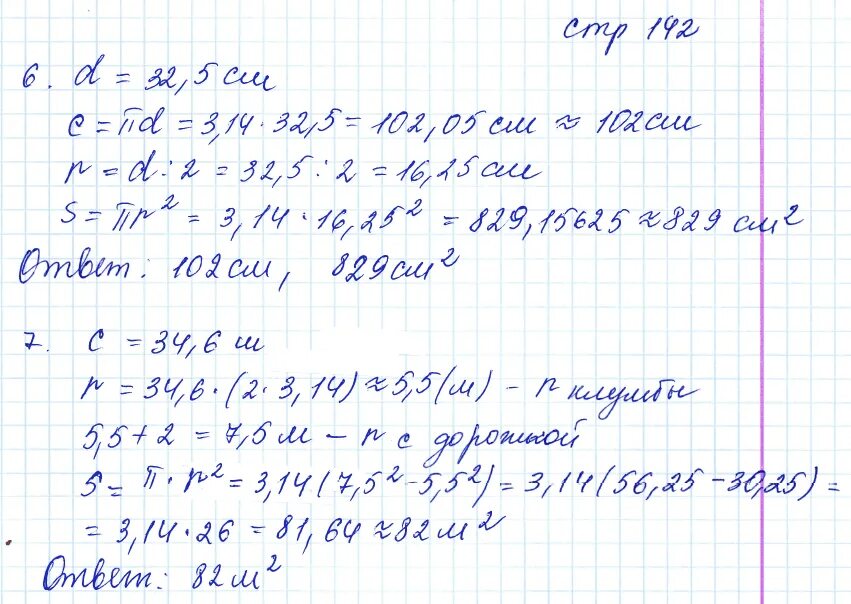 стр 142
6. d = 32,5 см
c = πd = 3,14 · 32,5 = 102,05 см ≈ 102 см
r = d : 2 = 32,5 : 2 = 16,25 см
S = πr² = 3,14 · 16,25² = 829,15625 ≈ 829 см²
Ответ: 102 см, 829 см²
7. c = 34,6 м
r = 34,6 · (2 · 3,14) ≈ 5,5 (м) – r клумбы
5,5 + 2 = 7,5 м – r с дорожкой
S = π · r² = 3,14 (7,5² - 5,5²) = 3,14 (56,25 - 30,25) =
= 3,14 · 26 = 81,64 ≈ 82 м²
Ответ: 82 м²